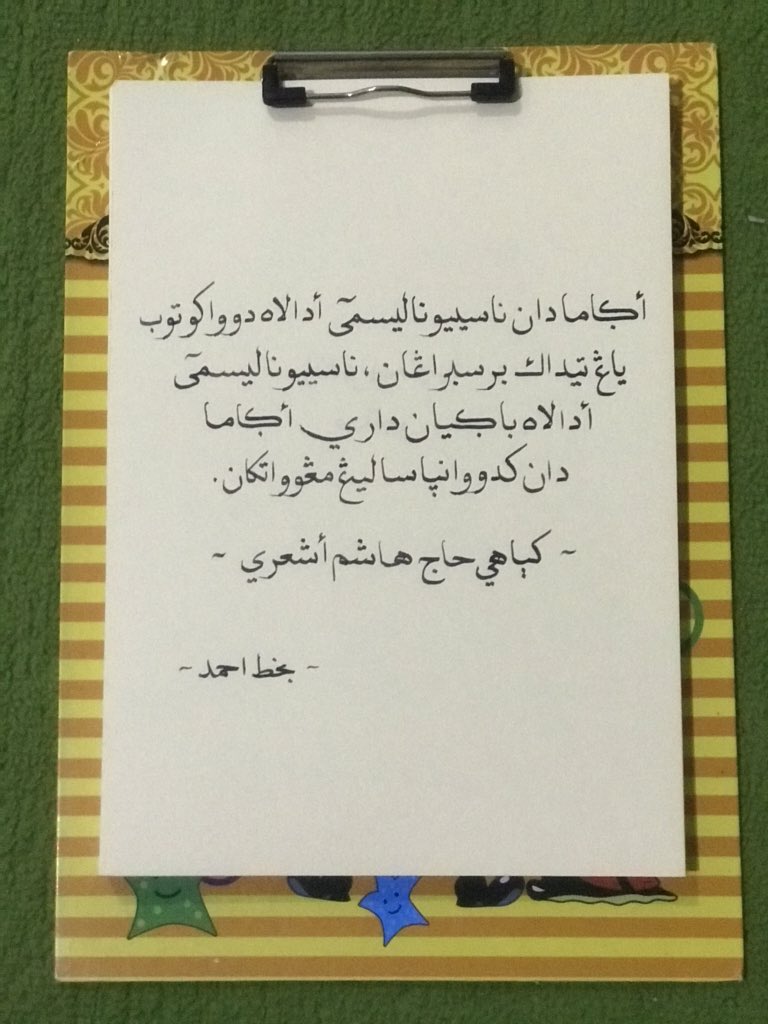 أݢاما دان ناسييوناليسمىٓ أدالاه دووا كوتوب
ياڠ تيداك برسبراڠان، ناسييوناليسمىٓ
أدالاه باݢيان داري أݢاما
دان كدووانپا ساليڠ مڠوواتكان.
~ كياهي حاج هاشم أشعري ~
~ بخط احمد ~